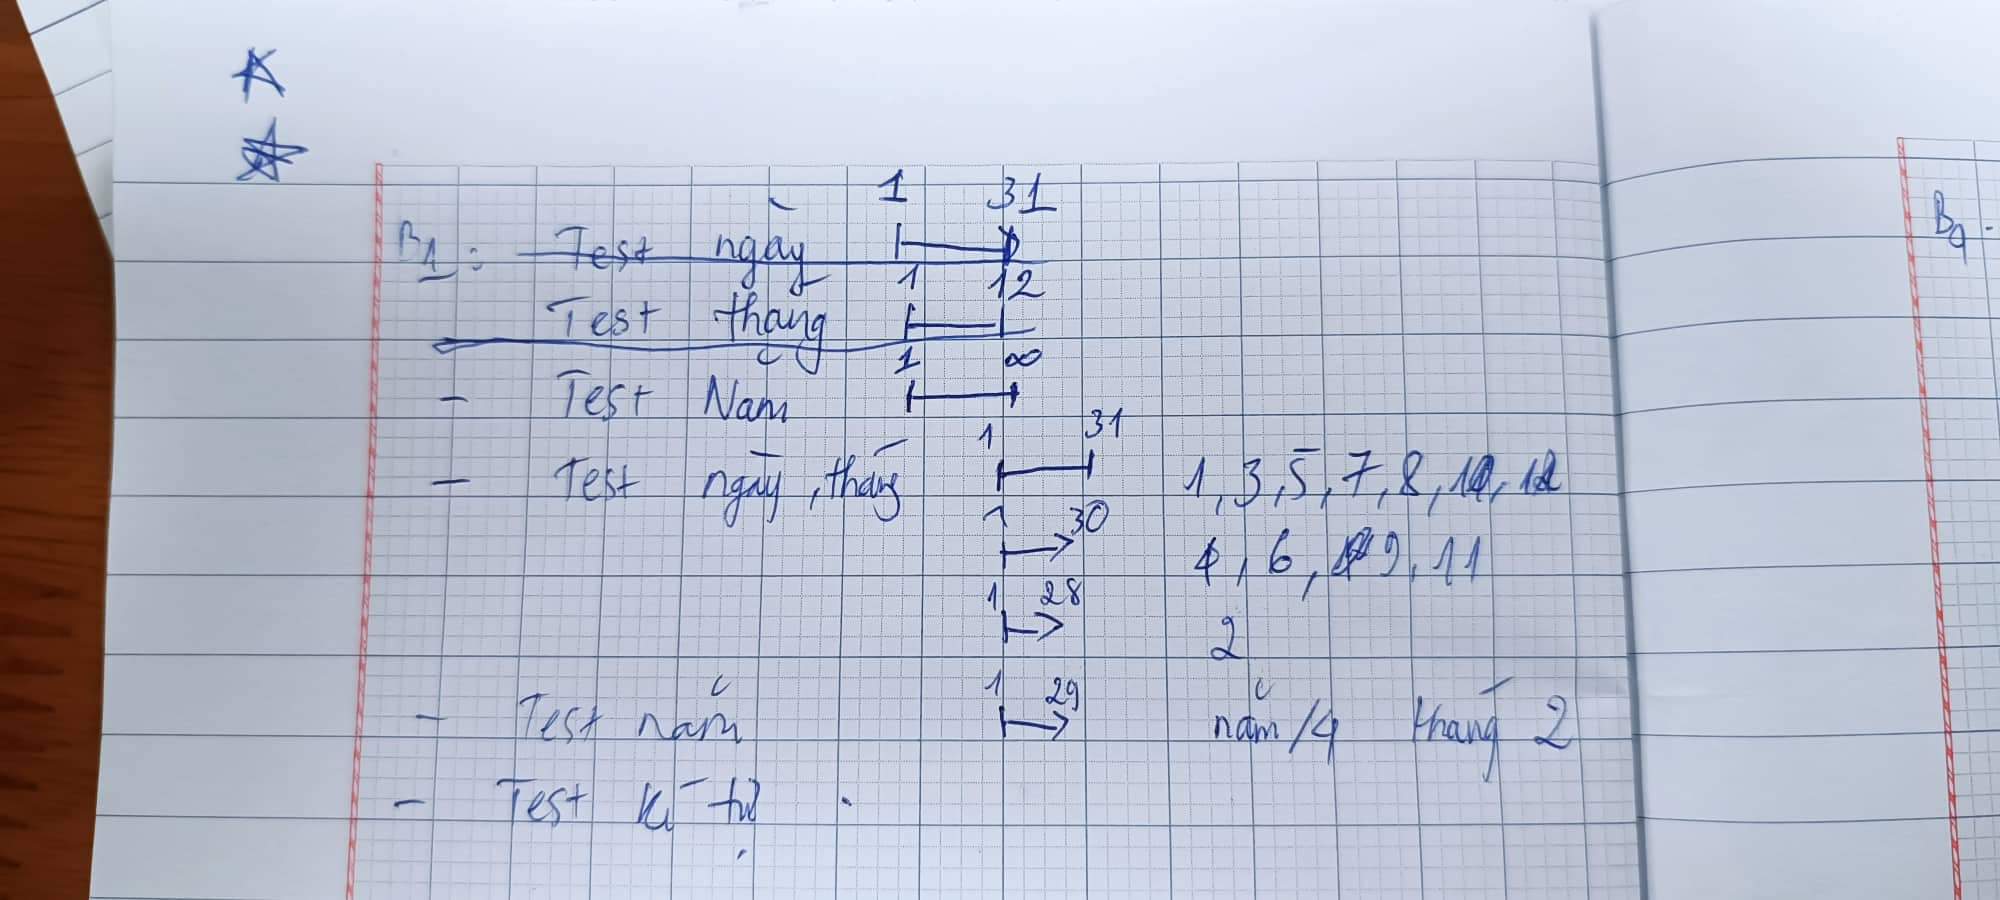 1 31
B1: Test ngày
1 12
Test tháng
1 ∞
- Test Năm
1 31
- Test ngày, tháng 1, 3, 5, 7, 8, 10, 12
1 30
4, 6, 9, 11
1 28
2
1 29
- Test năm năm /4 tháng 2
- Test kí tự
B9.